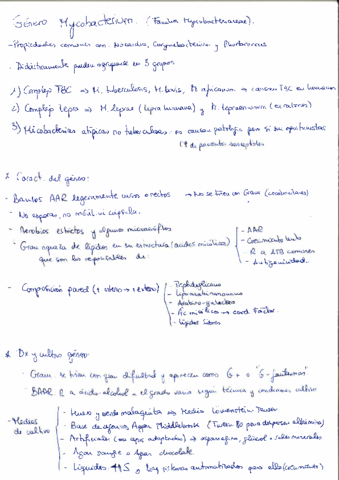 Género Mycobacterium. (Familia Mycobacteriaceae).
- Propiedades comunes con: Nocardia, Corynebacterium y
- Didácticamente pueden agruparse en 3 grupos
1) Complejo TBC => M. tuberculosis, M. bovis, M. africanum -> causan TBC en humanos
2) Complejo lepra => M. leprae (lepra humana) y M. lepraemurium (en ratones)
3) Micobacterias atípicas no tuberculosas: no causan patología per se son oportunistas
pacientes susceptibles
Caract. del género:
- Bacilos AAR ligeramente curvos o rectos -> No se tiñen con Gram
- No esporas, no móvil ni cápsula.
- Aerobios estrictos y algunos microaerófilos
- Gran riqueza de lípidos en su estructura (ácidos micólicos)
que son los responsables de:
- AAR
- Crecimiento lento
- R a ATB comunes
- Antigenicidad.
- Composición pared (+ interno -> + externo)
- Peptidoglicano
- Lipoarabinomanano
- Arabino-galactano
- Ác micólicos -> cord factor
- Lípidos libres.
Dx y cultivo género:
- Gram se tiñen con gran dificultad y aparecen como G+ o "G-fantasmas"
- BAAR R a ácido-alcohol -> el grado varía según técnica y condiciones cultivo
- Medios de cultivo
- Huevo y verde malaquita => Medio Löwenstein Jensen
- Base de agar => Agar Middlebrook (Tween 80 para dispersar
- Artificiales (en cepas adaptadas) -> asparagina, glicerol + sales minerales
- Agar sangre o Agar chocolate
- Líquidos: hay sistemas automatizados para ello (crecimiento)